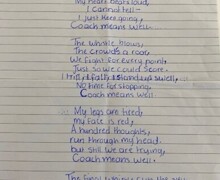 My heart beats loud,
I cannot tell-
I just keep going,
Coach means well.
The whistle blows,
The crowd's a roar,
We fight for every point,
Just so we could score.
I hit, I fall, I stand up swell,
No time for stopping,
Coach means well.
My legs are tired,
my face is red,
A hundred thoughts,
run through my head.
but still we are trying,
Coach means well.
The final